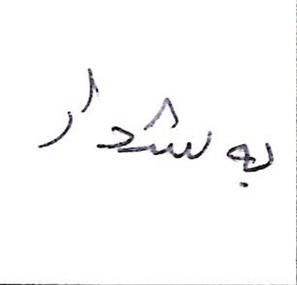 بەشدار